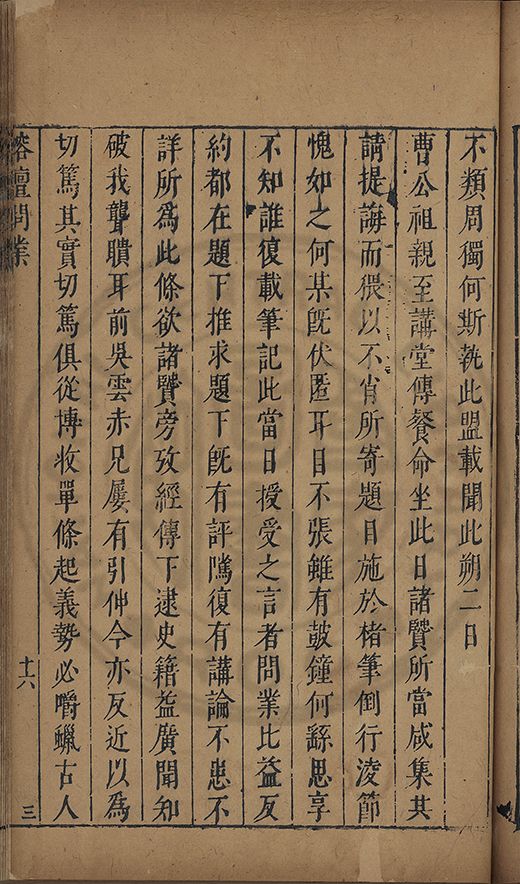 不類周獨何斯執此盟載聞此朔二日
曹公祖親至講堂傳餐命坐此日諸贒所當咸集其
請提誨而猥以不肖所寄題目施於楮筆倒行淩節
愧如之何某旣伏匿耳目不張雖有鼓鐘何繇思享
不知誰復載筆記此當日授受之言者問業比益反
約都在題下推求題下旣有評隲復有講論不患不
詳所爲此條欲諸贒旁攷經傳下逮史籍益廣聞知
破我聾聵耳前吳雲赤兄屢有引伸今亦反近以爲
切篤其實切篤俱從博收單條起義勢必嚼蠟古人
榕壇問業
十六
三